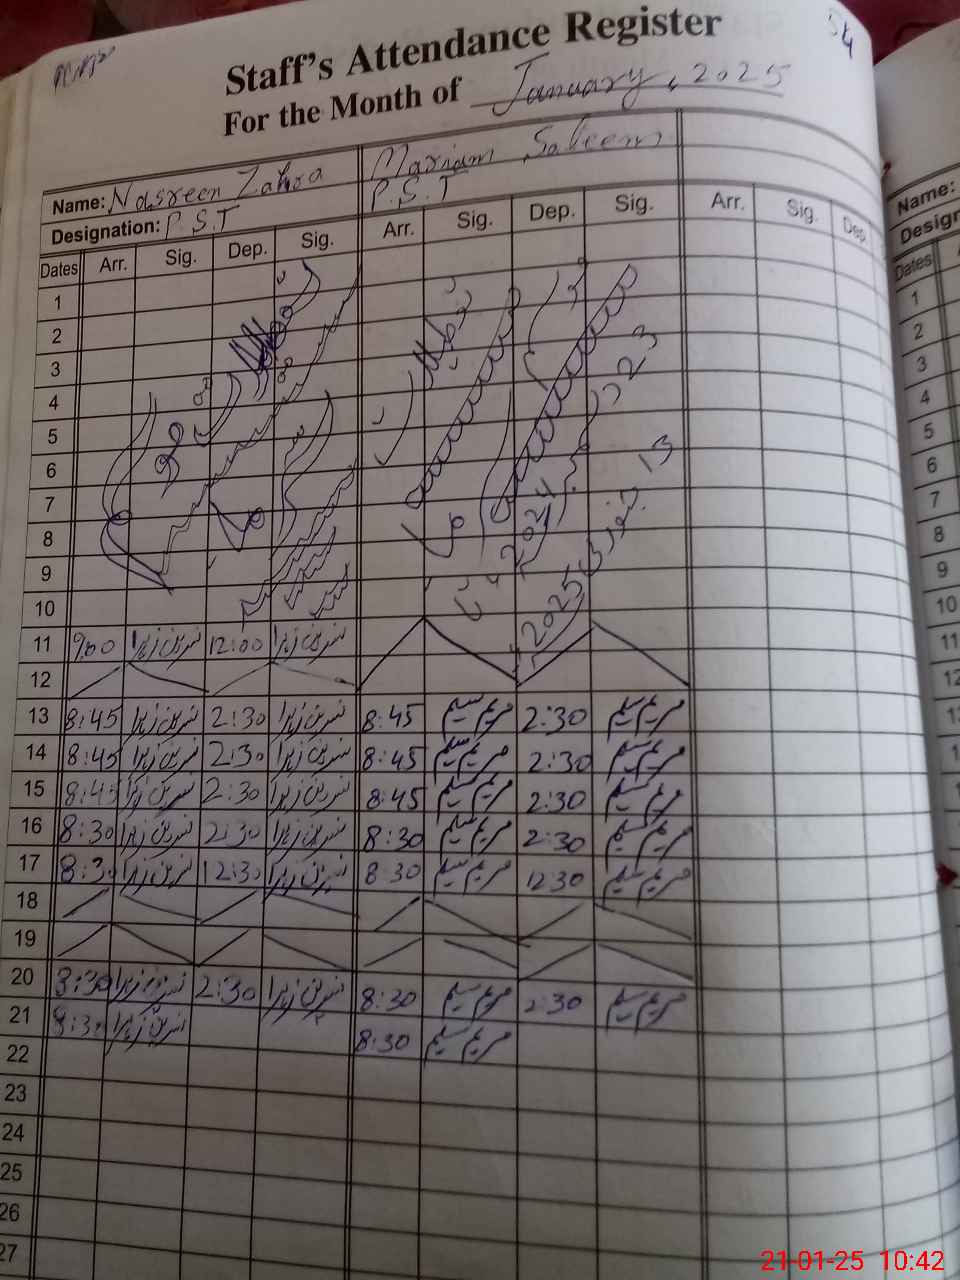 54
Staff's Attendance Register
For the Month of January, 2025
Name: Nasreen Zahra Mariam Saleem
Designation: P.S.T P.S.T
Dates Arr. Sig. Dep. Sig. Arr. Sig. Dep. Sig. Arr. Sig. Dep.
1
2
3
4
5
6
7
8
9
10
11 9:00 نسرین زہرا 12:00 نسرین زہرا
12
13 8:45 نسرین زہرا 2:30 نسرین زہرا 8:45 مریم سلیم 2:30 مریم سلیم
14 8:45 نسرین زہرا 2:30 نسرین زہرا 8:45 مریم سلیم 2:30 مریم سلیم
15 8:45 نسرین زہرا 2:30 نسرین زہرا 8:45 مریم سلیم 2:30 مریم سلیم
16 8:30 نسرین زہرا 2:30 نسرین زہرا 8:30 مریم سلیم 2:30 مریم سلیم
17 8:30 نسرین زہرا 12:30 نسرین زہرا 8:30 مریم سلیم 12:30 مریم سلیم
18
19
20 8:30 نسرین زہرا 2:30 نسرین زہرا 8:30 مریم سلیم 2:30 مریم سلیم
21 8:30 نسرین زہرا نسرین زہرا 8:30 مریم سلیم
22
23
24
25
26
27
23
2024
13 جنوری 2025
Name:
Design
Dates
1
2
3
4
5
6
7
8
9
10
11
12
21-01-25 10:42